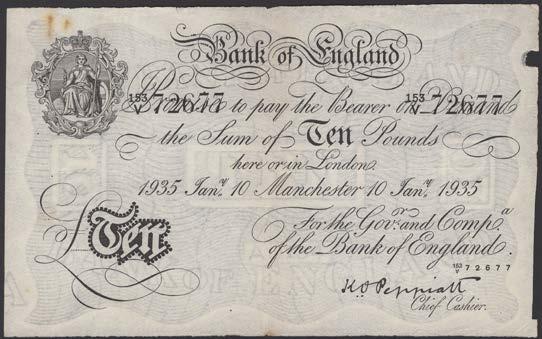 Bank of England
153/V 72677 Promise to pay the Bearer on Demand 153/V 72677
the Sum of Ten Pounds
here or in London.
1935 Janʸ 10 Manchester 10 Janʸ 1935
For the Govʳ and Compᵃ
of the Bank of England.
£Ten
153/V 72677
K O Peppiatt
Chief Cashier.